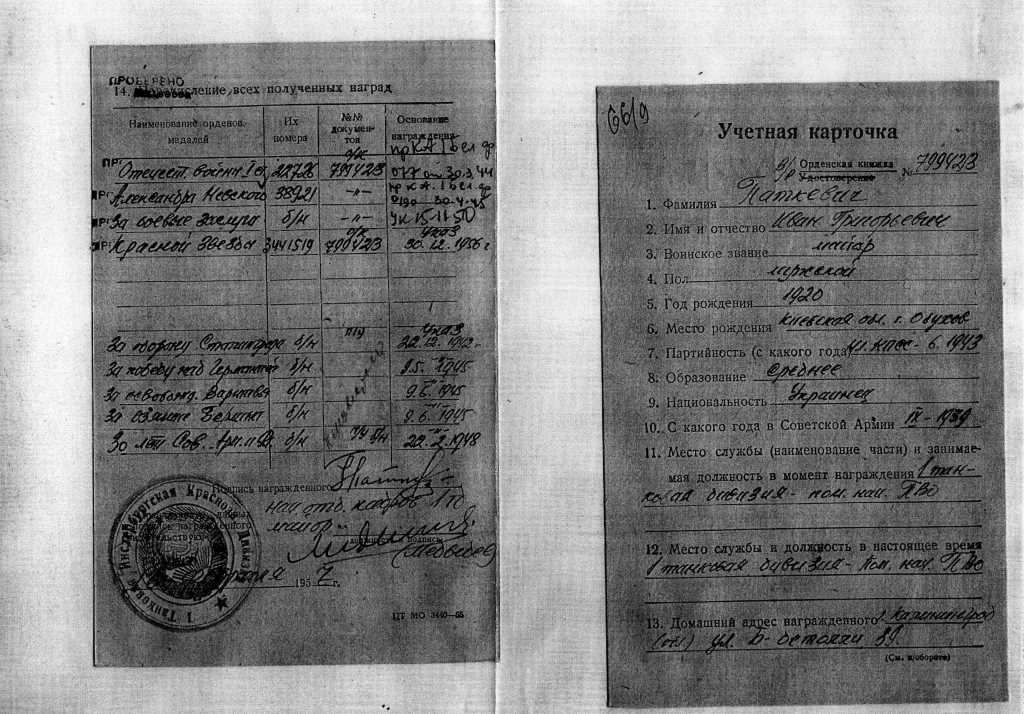 ПРОВЕРЕНО
14. Перечисление всех полученных наград
Наименование орденов, медалей
Их номера
№№ документов
Основание награждения
Отечеств. войны I ст. 22726 о/к 799423 пр КА 1 Бел. фр 077 от 30.3.44
Александра Невского 33921 -"- пр КА. 1 Бел. фр
За боевые заслуги б/н -"- Ук 15-11-50
Красной Звезды 3441519 о/к 799423 Указ 30.12.1956 г
За оборону Сталинграда б/н Указ 22.12.1942
За победу над Германией б/н 9.5.1945
За освобожд. Варшавы б/н 9.6.1945
За взятие Берлина б/н 9.6.1945
30 лет Сов. Армии б/н 22.2.1948
Подпись награжденного
нач отд. кадров 1 тд
майор
должность подпись
(Медведев)
195 7 г.
1 Танковая Инстербургская Краснозн. Дивизия
ЦТ МО 3440—55
66/9
Учетная карточка
В/р Орденская книжка
Удостоверение № 799423
1. Фамилия Паткевич
2. Имя и отчество Иван Григорьевич
3. Воинское звание майор
4. Пол мужской
5. Год рождения 1920
6. Место рождения Киевская обл. г. Обухов
7. Партийность (с какого года) чл. КПСС - 6. 1943
8. Образование среднее
9. Национальность Украинец
10. С какого года в Советской Армии IX - 1939
11. Место службы (наименование части) и занимае-
мая должность в момент награждения 1 тан-
ковая дивизия - пом. нач. ПВО
12. Место службы и должность в настоящее время
1 танковая дивизия - пом. нач. ПВО
13. Домашний адрес награжденного г. Калининград
(обл.) ул.
(См. на обороте)